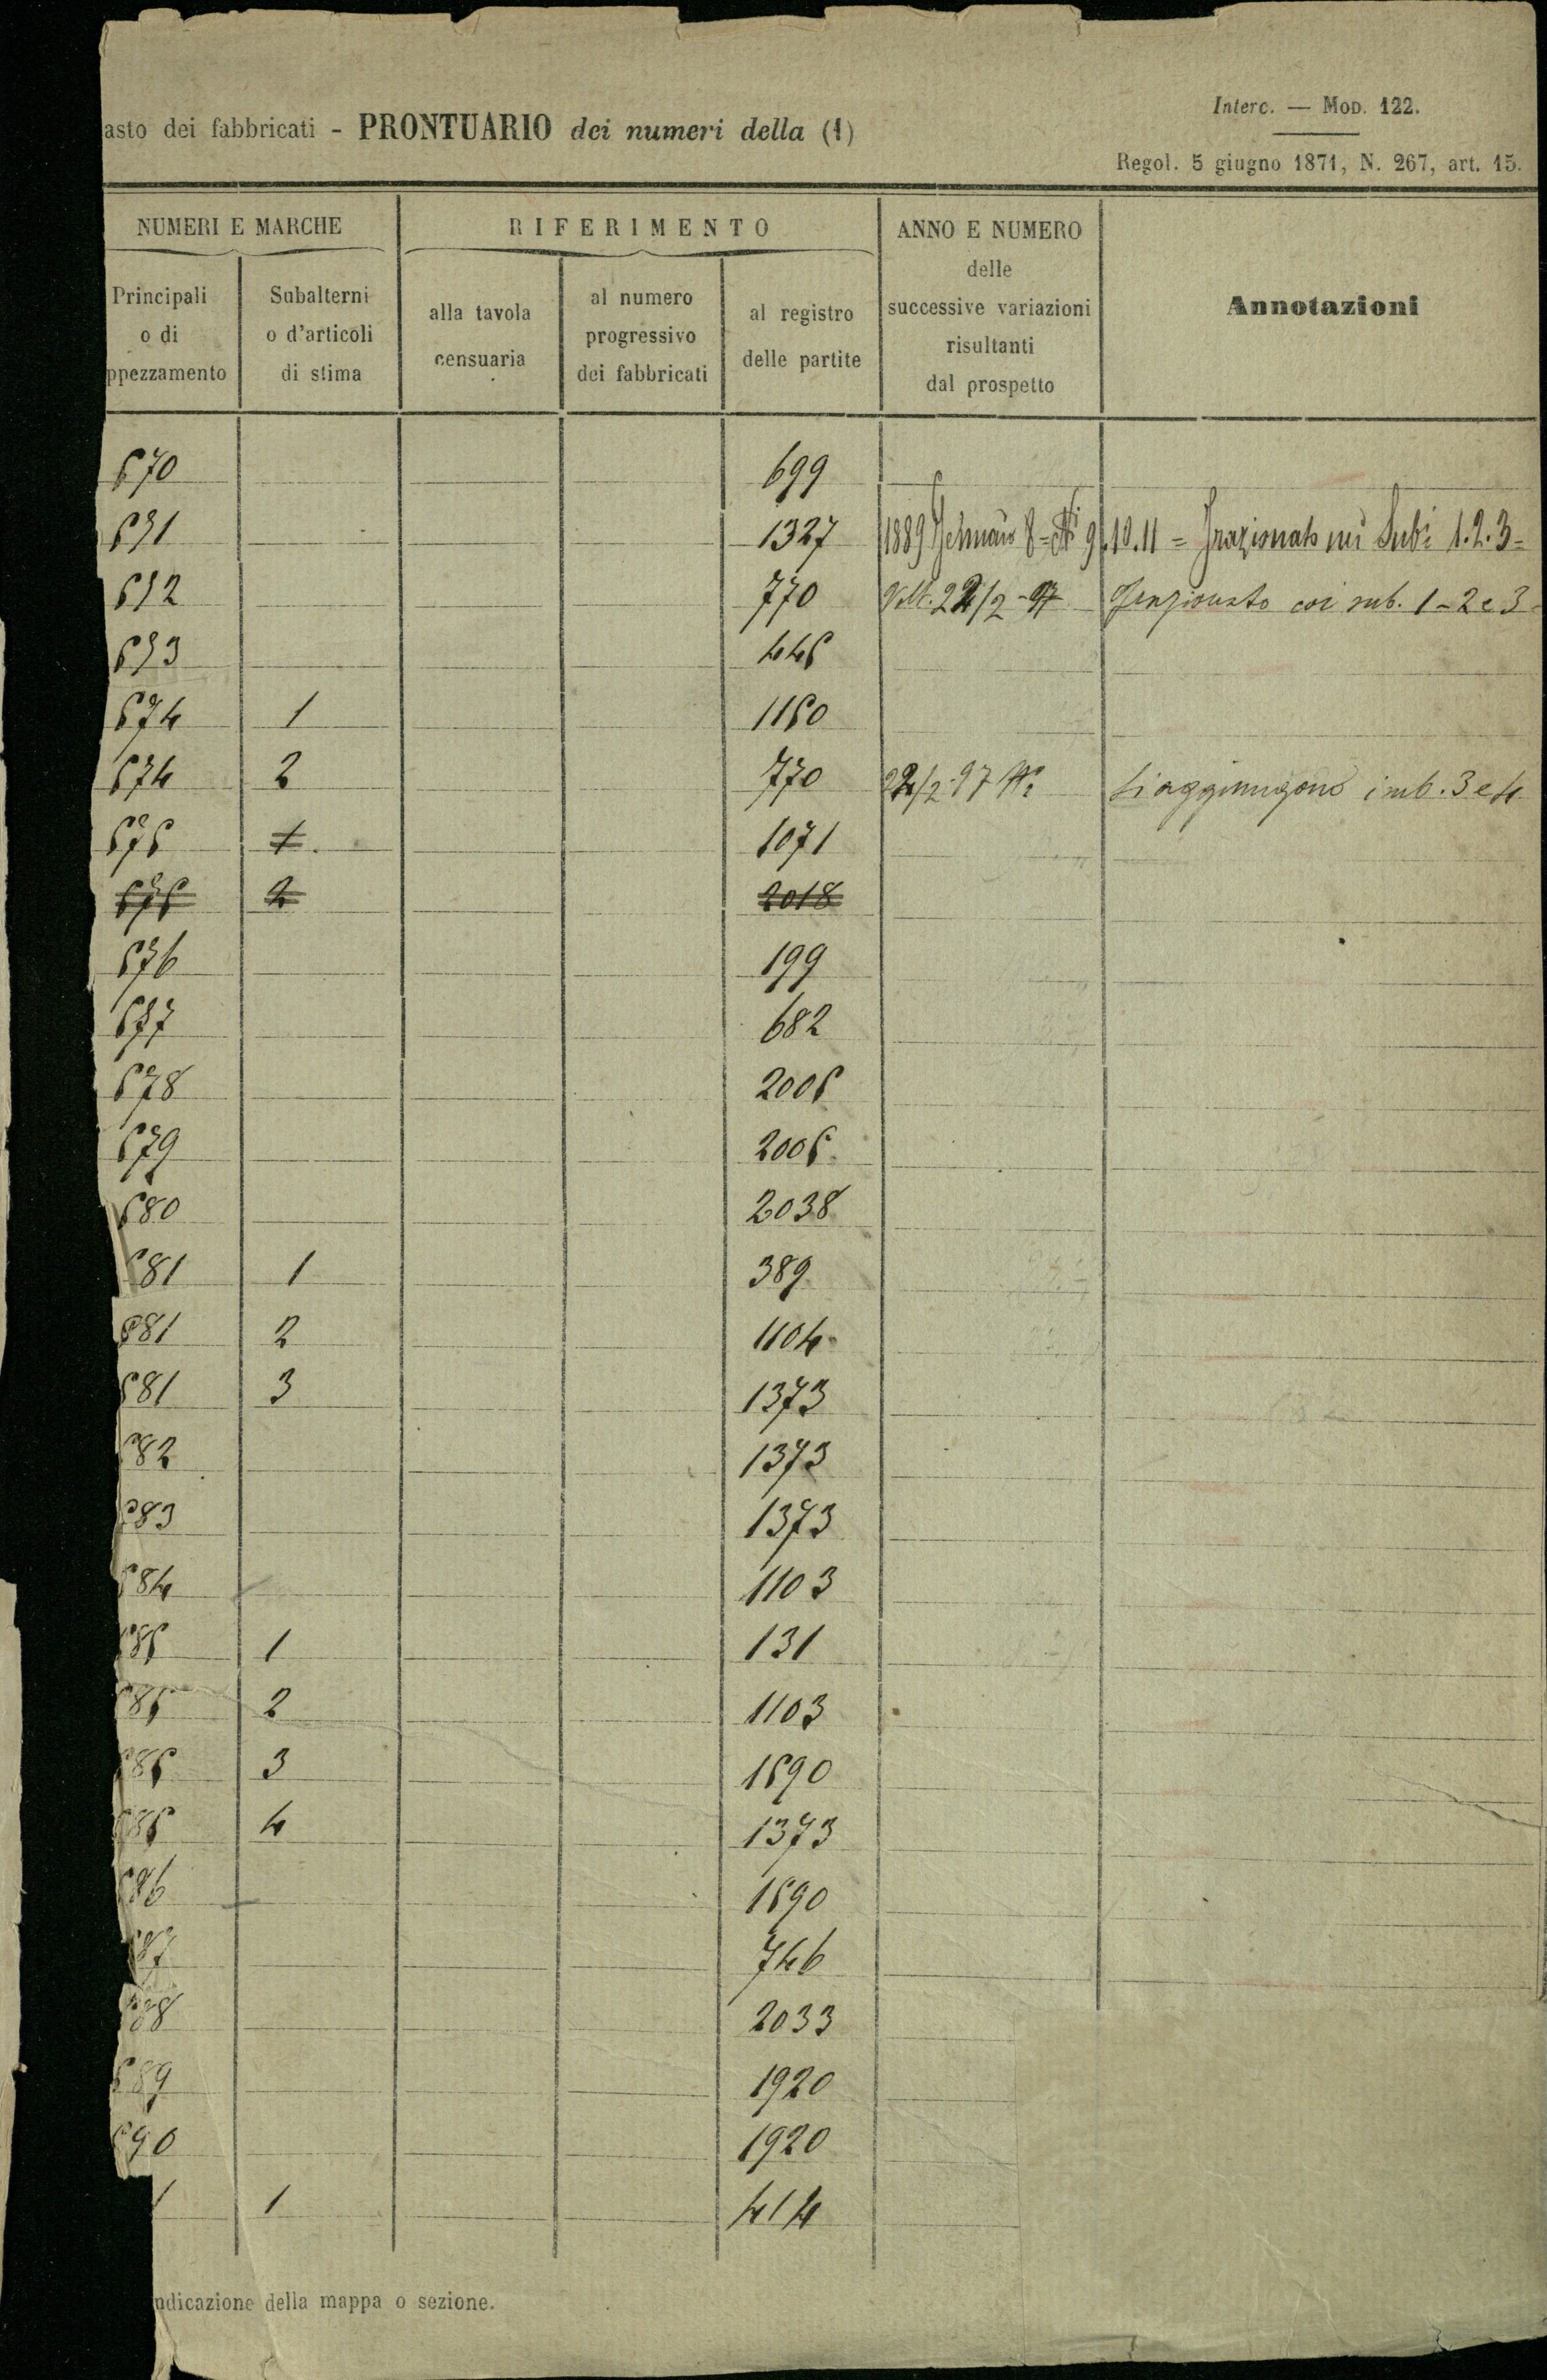 asto dei fabbricati - PRONTUARIO dei numeri della (1)
Interc. — Mod. 122.
Regol. 5 giugno 1871, N. 267, art. 15.
NUMERI E MARCHE
RIFERIMENTO
ANNO E NUMERO
delle
successive variazioni
risultanti
dal prospetto
Annotazioni
Principali
o di
ppezzamento
Subalterni
o d'articoli
di stima
alla tavola
censuaria
al numero
progressivo
dei fabbricati
al registro
delle partite
570 699
571 1327 1889 8 = Ni 9.10.11 = Frazionato nei Subi 1.2.3=
572 770 Volt. 22/2-97 Frazionato coi sub. 1-2 e 3-
573 445
574 1 1150
574 2 770 22/2-97 Si aggiungono i sub. 3 e 4
575 1. 1071
575 2 2018
576 199
577 682
578 2005
579 2005
580 2038
581 1 389
581 2 1104
581 3 1373
582 1373
583 1373
584 1103
585 1 131
585 2 1103
585 3 1590
585 4 1373
586 1590
587 746
588 2033
589 1920
590 1920
1 1 414
ndicazione della mappa o sezione.